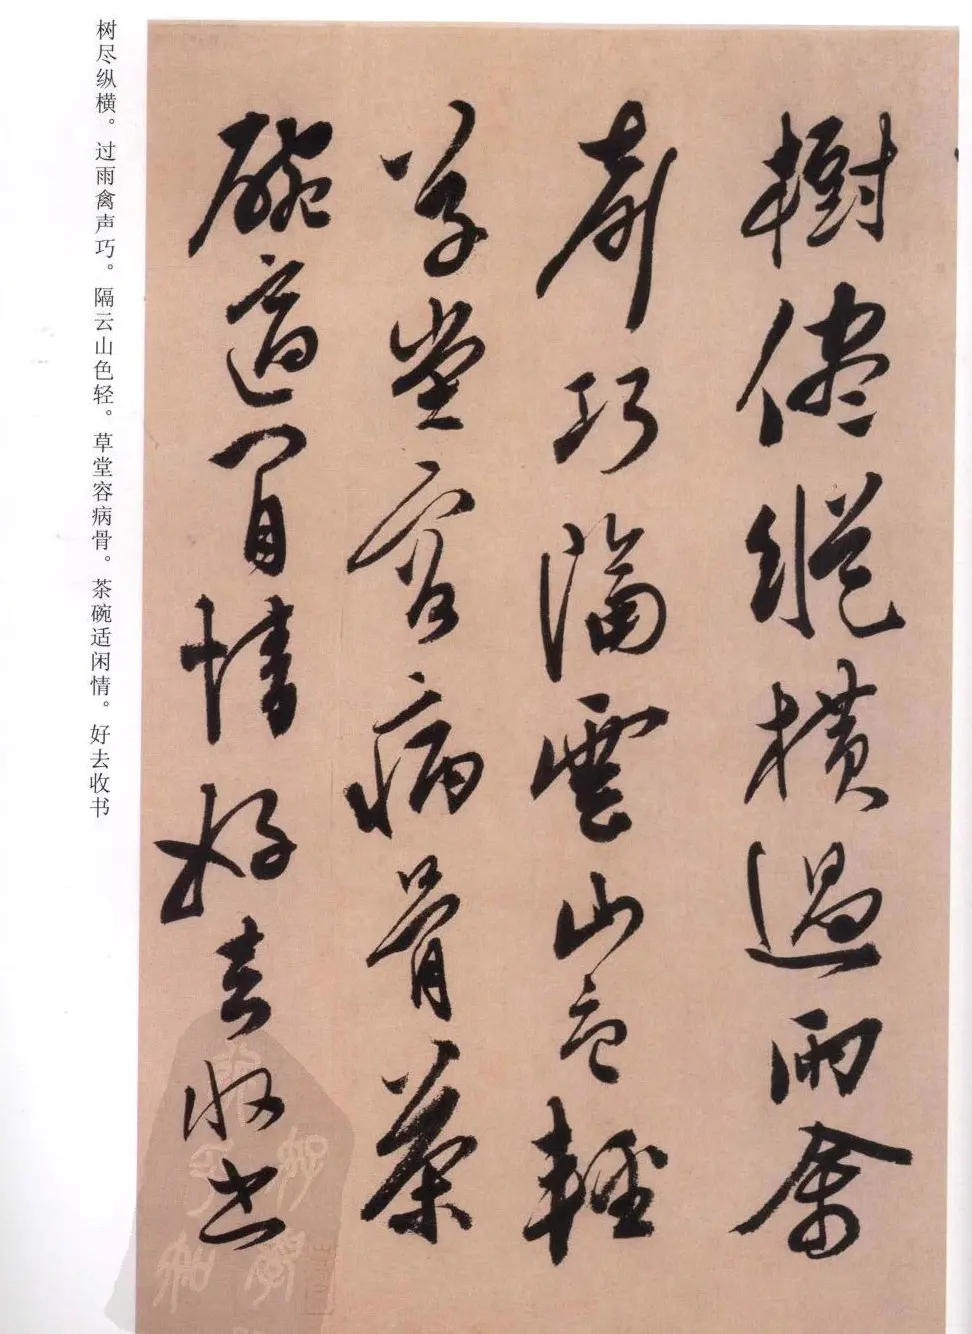 樹儘縱橫過雨禽
聲巧隔雲山色輕
草堂容病骨茶
碗適閒情好去收书
树尽纵横。过雨禽声巧。隔云山色轻。草堂容病骨。茶碗适闲情。好去收书